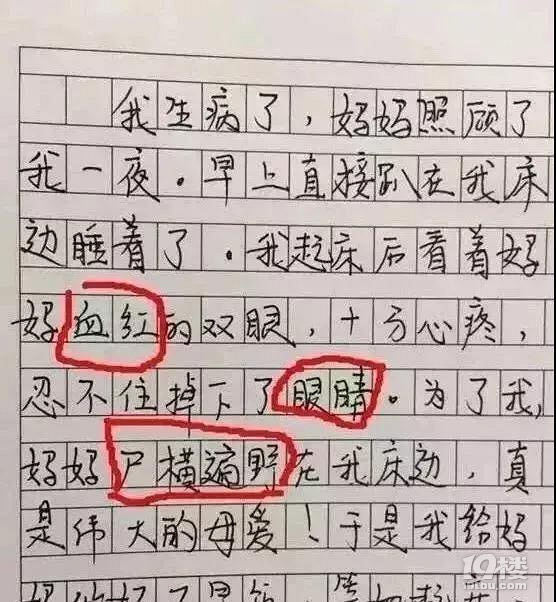 我生病了，妈妈照顾了
我一夜。早上直接趴在我床
边睡着了。我起床后看着妈
妈血红的双眼，十分心疼，
忍不住掉下了眼睛。为了我，
妈妈尸横遍野在我床边，真
是伟大的母爱！于是我给妈
19楼